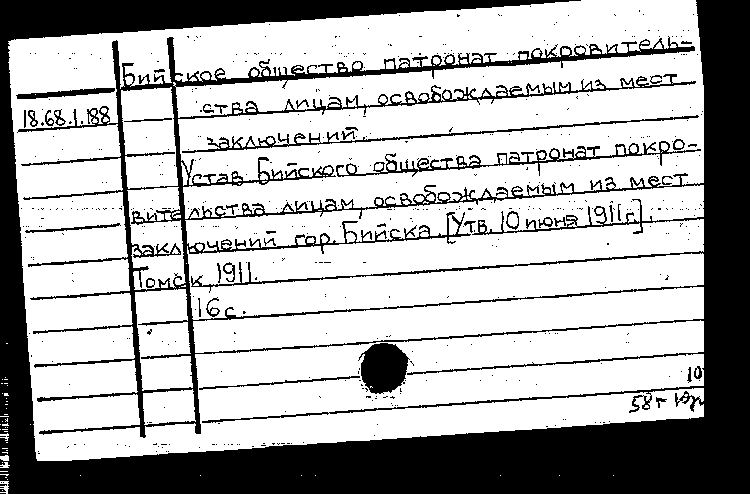 Бийское общество патронат покровитель-
18.68.1.188 ства лицам, освобождаемым из мест
заключений.
Устав Бийского общества патронат покро-
вительства лицам, освобождаемым из мест
заключений гор. Бийска. [Утв. 10 июня 1911 г.].
Томск, 1911.
16 с.
10
58 г